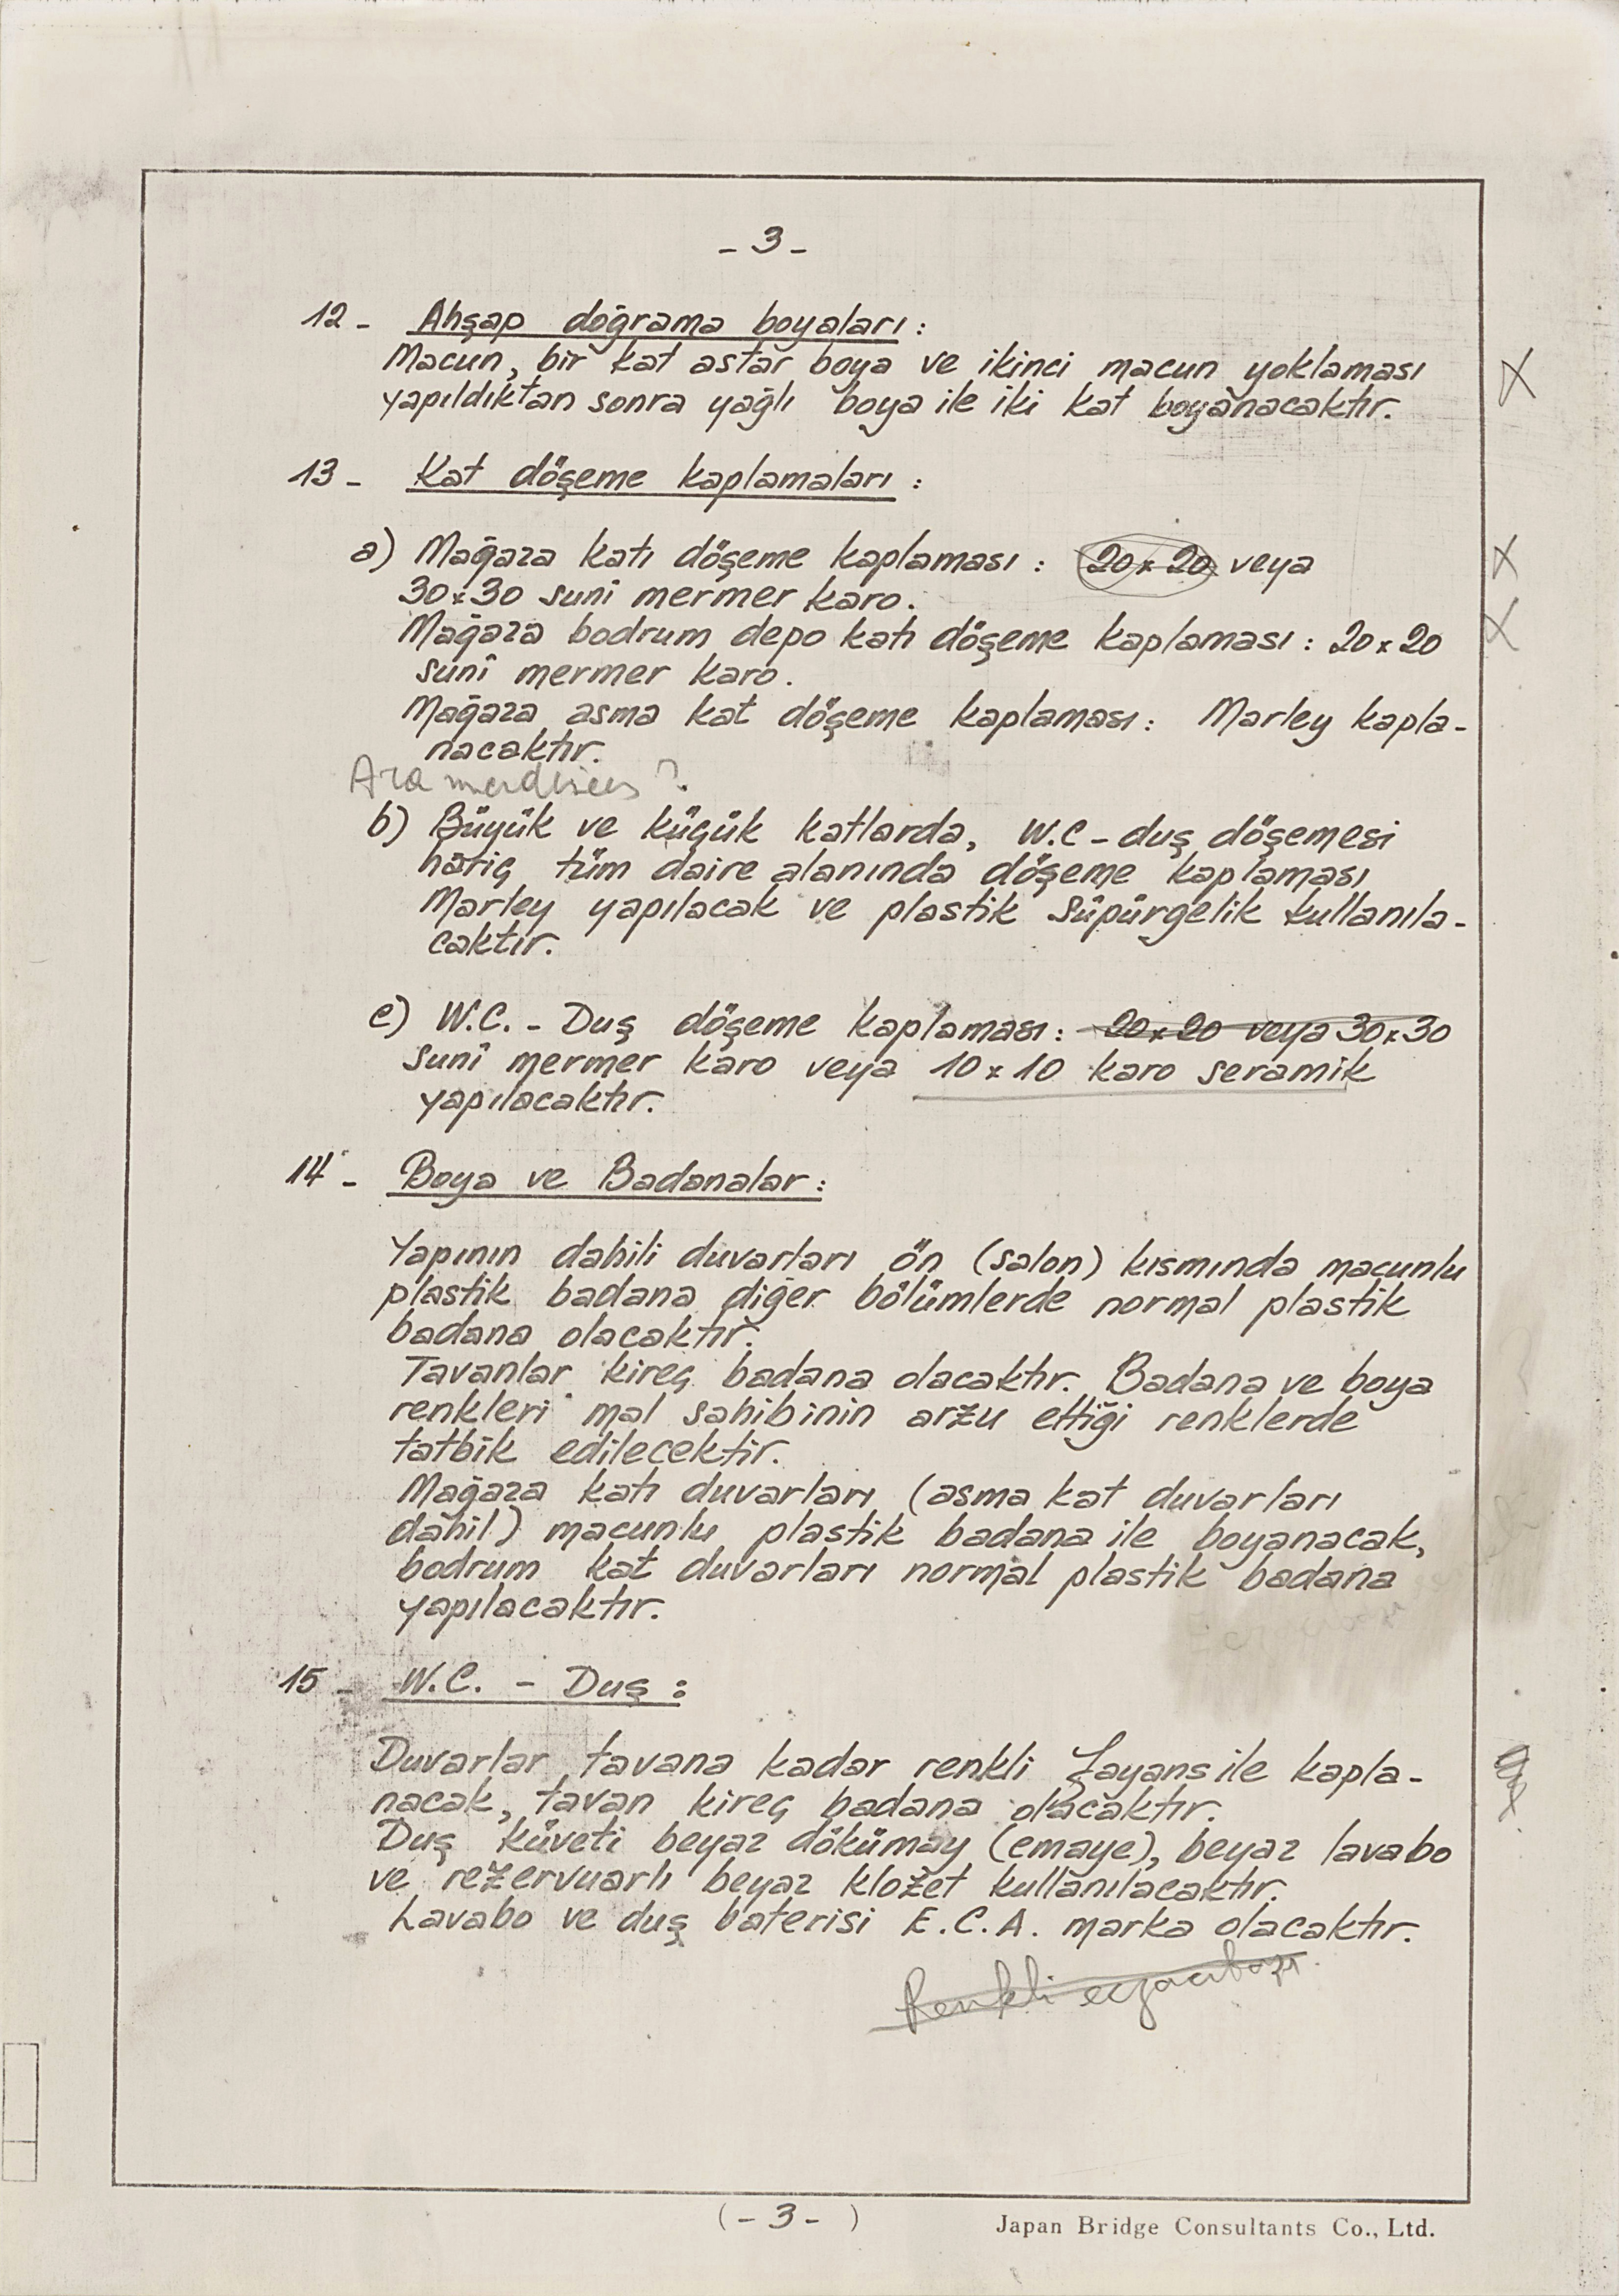 - 3 -
12 - Ahşap doğrama boyaları :
Macun, bir kat astar boya ve ikinci macun yoklaması
yapıldıktan sonra yağlı boya ile iki kat boyanacaktır.
13 - Kat döşeme kaplamaları :
a) Mağaza katı döşeme kaplaması : 20x20 veya
30x30 suni mermer karo.
Mağaza bodrum depo katı döşeme kaplaması : 20x20
sunî mermer karo.
Mağaza asma kat döşeme kaplaması : Marley kapla-
nacaktır.
Ara merdiven ?
b) Büyük ve küçük katlarda, W.C - duş döşemesi
hariç tüm daire alanında döşeme kaplaması
Marley yapılacak ve plastik süpürgelik kullanıla-
caktır.
c) W.C. - Duş döşeme kaplaması : 20x20 veya 30x30
sunî mermer karo veya 10x10 karo seramik
yapılacaktır.
14 - Boya ve Badanalar :
Yapının dahili duvarları ön (salon) kısmında macunlu
plastik badana diğer bölümlerde normal plastik
badana olacaktır.
Tavanlar kireç badana olacaktır. Badana ve boya
renkleri mal sahibinin arzu ettiği renklerde
tatbik edilecektir.
Mağaza katı duvarları (asma kat duvarları
dahil) macunlu plastik badana ile boyanacak,
bodrum kat duvarları normal plastik badana
yapılacaktır.
15 - W.C. - Duş :
Duvarlar tavana kadar renkli fayans ile kapla-
nacak, tavan kireç badana olacaktır.
Duş küveti beyaz dökümay (emaye), beyaz lavabo
ve rezervuarlı beyaz klozet kullanılacaktır.
Lavabo ve duş baterisi E.C.A. marka olacaktır.
Renkli eczacıbaşı
( - 3 - )
Japan Bridge Consultants Co., Ltd.